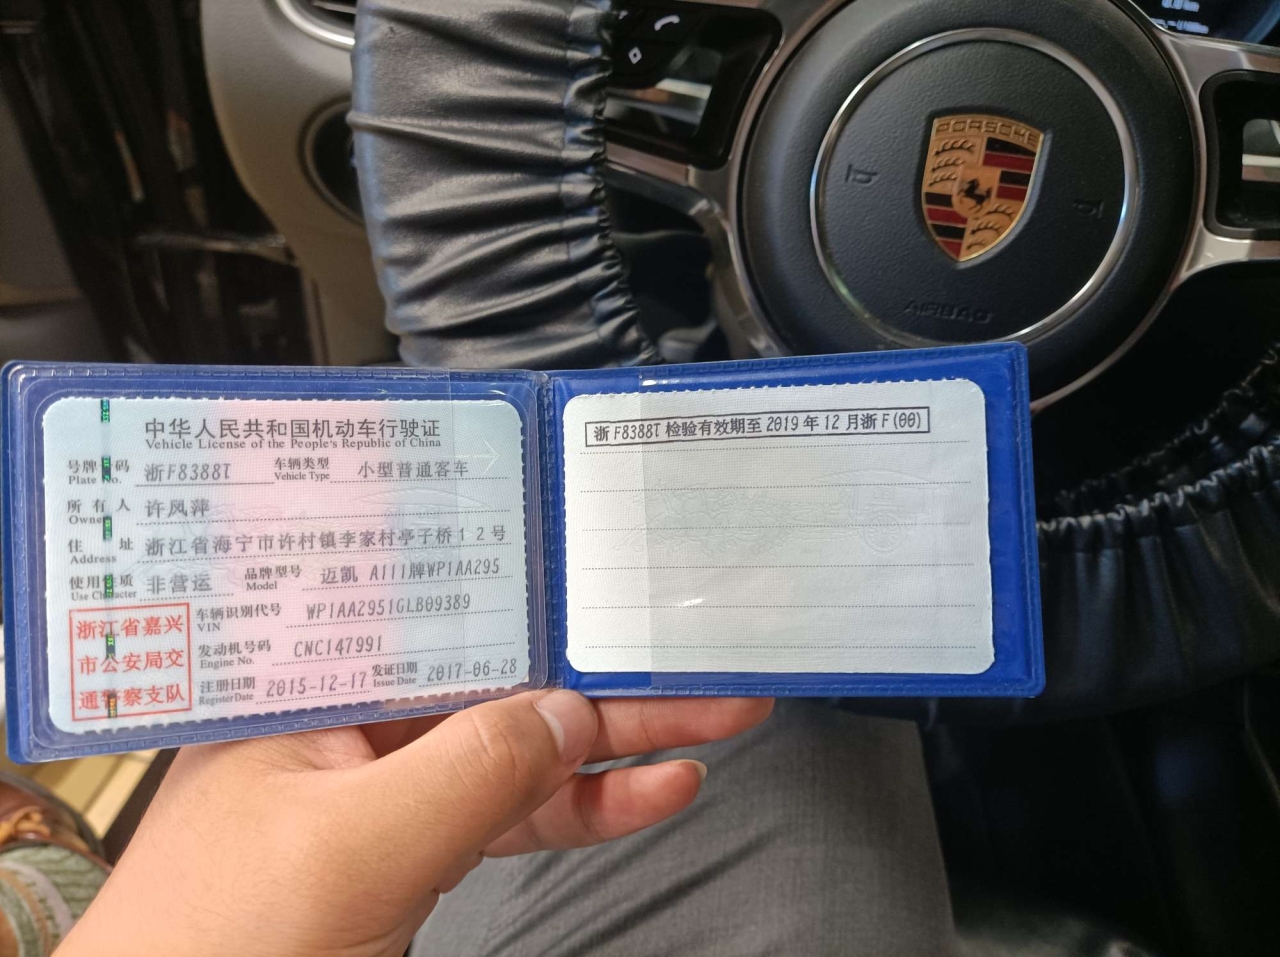 PORSCHE
AIRBAG
中华人民共和国机动车行驶证
Vehicle License of the People's Republic of China
号牌号码 浙F8388T 车辆类型 小型普通客车
Plate No. Vehicle Type
所有人 许凤萍
Owner
住址 浙江省海宁市许村镇李家村亭子桥12号
Address
使用性质 非营运 品牌型号 迈凯 A111牌WP1AA295
Use Character Model
浙江省嘉兴
市公安局交
通警察支队
车辆识别代号 WP1AA2951GLB09389
VIN
发动机号码 CNC147991
Engine No.
注册日期 2015-12-17 发证日期 2017-06-28
Register Date Issue Date
浙F8388T 检验有效期至 2019 年 12 月浙 F(00)